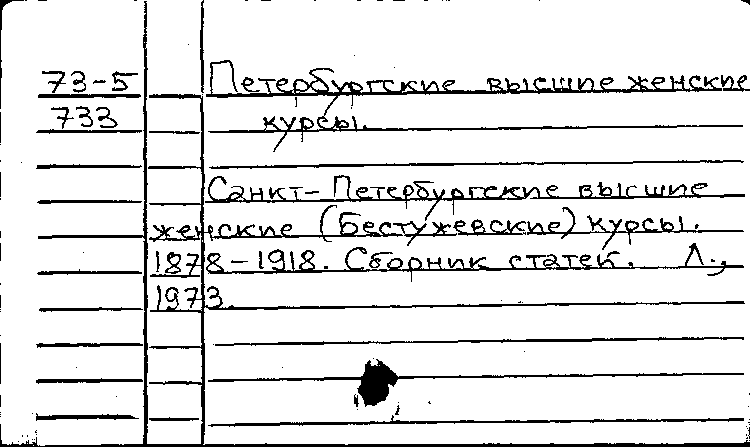 73-5 Петербургские высшие женские
733 курсы.
Санкт-Петербургские высшие
женские (Бестужевские) курсы.
1878-1918. Сборник статей. Л.,
1973.